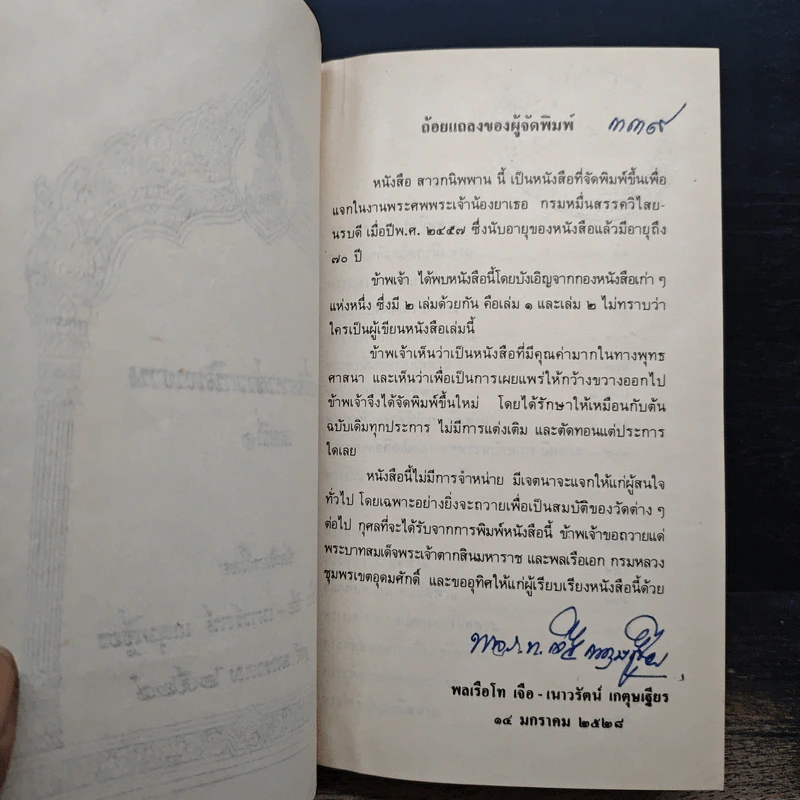 ถ้อยแถลงของผู้จัดพิมพ์ ๓๓๙
หนังสือ สาวกนิพพาน นี้ เป็นหนังสือที่จัดพิมพ์ขึ้นเพื่อ
แจกในงานพระศพพระเจ้าน้องยาเธอ กรมหมื่นสรรควิไสย-
นรบดี เมื่อปีพ.ศ. ๒๔๕๗ ซึ่งนับอายุของหนังสือแล้วมีอายุถึง
๗๐ ปี
ข้าพเจ้า ได้พบหนังสือนี้โดยบังเอิญจากกองหนังสือเก่า ๆ
แห่งหนึ่ง ซึ่งมี ๒ เล่มด้วยกัน คือเล่ม ๑ และเล่ม ๒ ไม่ทราบว่า
ใครเป็นผู้เขียนหนังสือเล่มนี้
ข้าพเจ้าเห็นว่าเป็นหนังสือที่มีคุณค่ามากในทางพุทธ
ศาสนา และเห็นว่าเพื่อเป็นการเผยแพร่ให้กว้างขวางออกไป
ข้าพเจ้าจึงได้จัดพิมพ์ขึ้นใหม่ โดยได้รักษาให้เหมือนกับต้น
ฉบับเดิมทุกประการ ไม่มีการแต่งเติม และตัดทอนแต่ประการ
ใดเลย
หนังสือนี้ไม่มีการจำหน่าย มีเจตนาจะแจกให้แก่ผู้สนใจ
ทั่วไป โดยเฉพาะอย่างยิ่งจะถวายเพื่อเป็นสมบัติของวัดต่าง ๆ
ต่อไป กุศลที่จะได้รับจากการพิมพ์หนังสือนี้ ข้าพเจ้าขอถวายแด่
พระบาทสมเด็จพระเจ้าตากสินมหาราช และพลเรือเอก กรมหลวง
ชุมพรเขตอุดมศักดิ์ และขออุทิศให้แก่ผู้เรียบเรียงหนังสือนี้ด้วย
พลเรือโท เจือ - เนาวรัตน์ เกตุษเฐียร
๑๔ มกราคม ๒๕๒๘